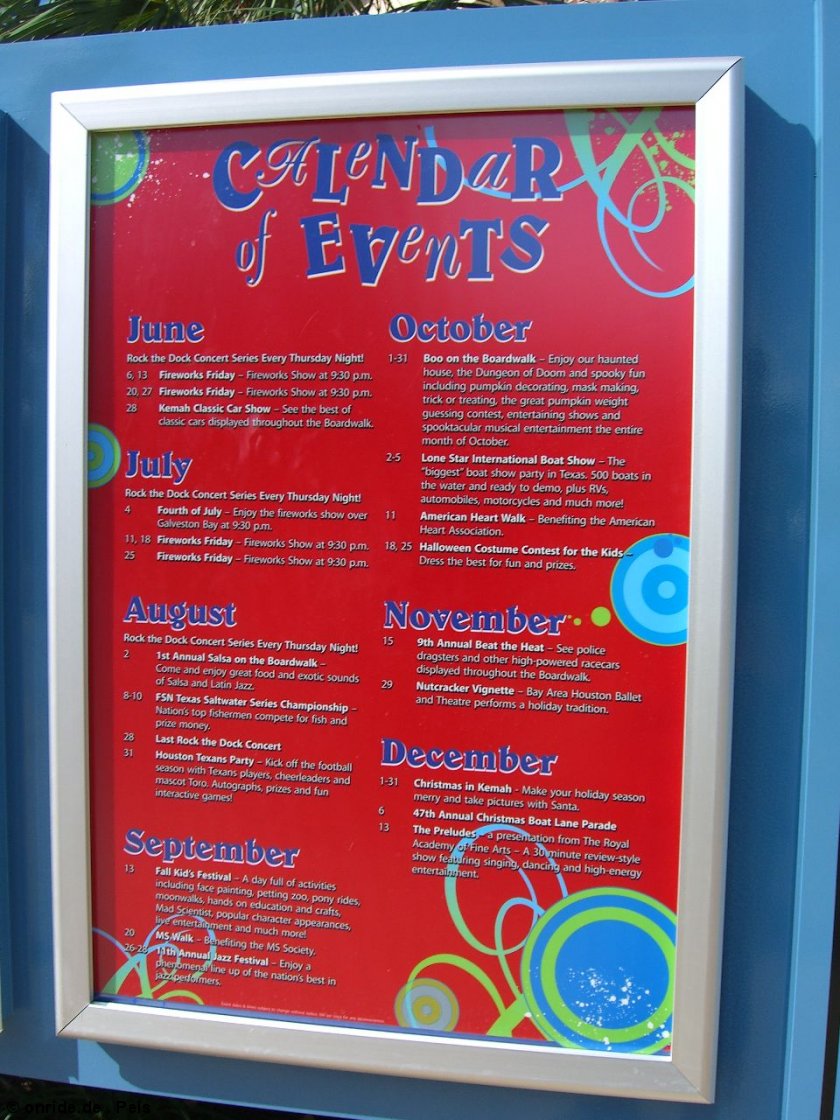 CALeNDaR
of EVenTS
June
Rock the Dock Concert Series Every Thursday Night!
6, 13 Fireworks Friday – Fireworks Show at 9:30 p.m.
20, 27 Fireworks Friday – Fireworks Show at 9:30 p.m.
28 Kemah Classic Car Show – See the best of
classic cars displayed throughout the Boardwalk.
July
Rock the Dock Concert Series Every Thursday Night!
4 Fourth of July – Enjoy the fireworks show over
Galveston Bay at 9:30 p.m.
11, 18 Fireworks Friday – Fireworks Show at 9:30 p.m.
25 Fireworks Friday – Fireworks Show at 9:30 p.m.
August
Rock the Dock Concert Series Every Thursday Night!
2 1st Annual Salsa on the Boardwalk –
Come and enjoy great food and exotic sounds
of Salsa and Latin Jazz.
8-10 FSN Texas Saltwater Series Championship –
Nation's top fishermen compete for fish and
prize money.
28 Last Rock the Dock Concert
31 Houston Texans Party – Kick off the football
season with Texans players, cheerleaders and
mascot Toro. Autographs, prizes and fun
interactive games!
September
13 Fall Kid's Festival – A day full of activities
including face painting, petting zoo, pony rides,
moonwalks, hands on education and crafts,
Mad Scientist, popular character appearances,
live entertainment and much more!
20 MS Walk – Benefiting the MS Society.
26-28 11th Annual Jazz Festival – Enjoy a
phenomenal line up of the nation's best in
jazz performers.
October
1-31 Boo on the Boardwalk – Enjoy our haunted
house, the Dungeon of Doom and spooky fun
including pumpkin decorating, mask making,
trick or treating, the great pumpkin weight
guessing contest, entertaining shows and
spooktacular musical entertainment the entire
month of October.
2-5 Lone Star International Boat Show – The
"biggest" boat show party in Texas. 500 boats in
the water and ready to demo, plus RVs,
automobiles, motorcycles and much more!
11 American Heart Walk – Benefiting the American
Heart Association.
18, 25 Halloween Costume Contest for the Kids –
Dress the best for fun and prizes.
November
15 9th Annual Beat the Heat – See police
dragsters and other high-powered racecars
displayed throughout the Boardwalk.
29 Nutcracker Vignette – Bay Area Houston Ballet
and Theatre performs a holiday tradition.
December
1-31 Christmas in Kemah - Make your holiday season
merry and take pictures with Santa.
6 47th Annual Christmas Boat Lane Parade
13 The Preludes - a presentation from The Royal
Academy of Fine Arts – A 30 minute review-style
show featuring singing, dancing and high-energy
entertainment.
© onride.de, Pels